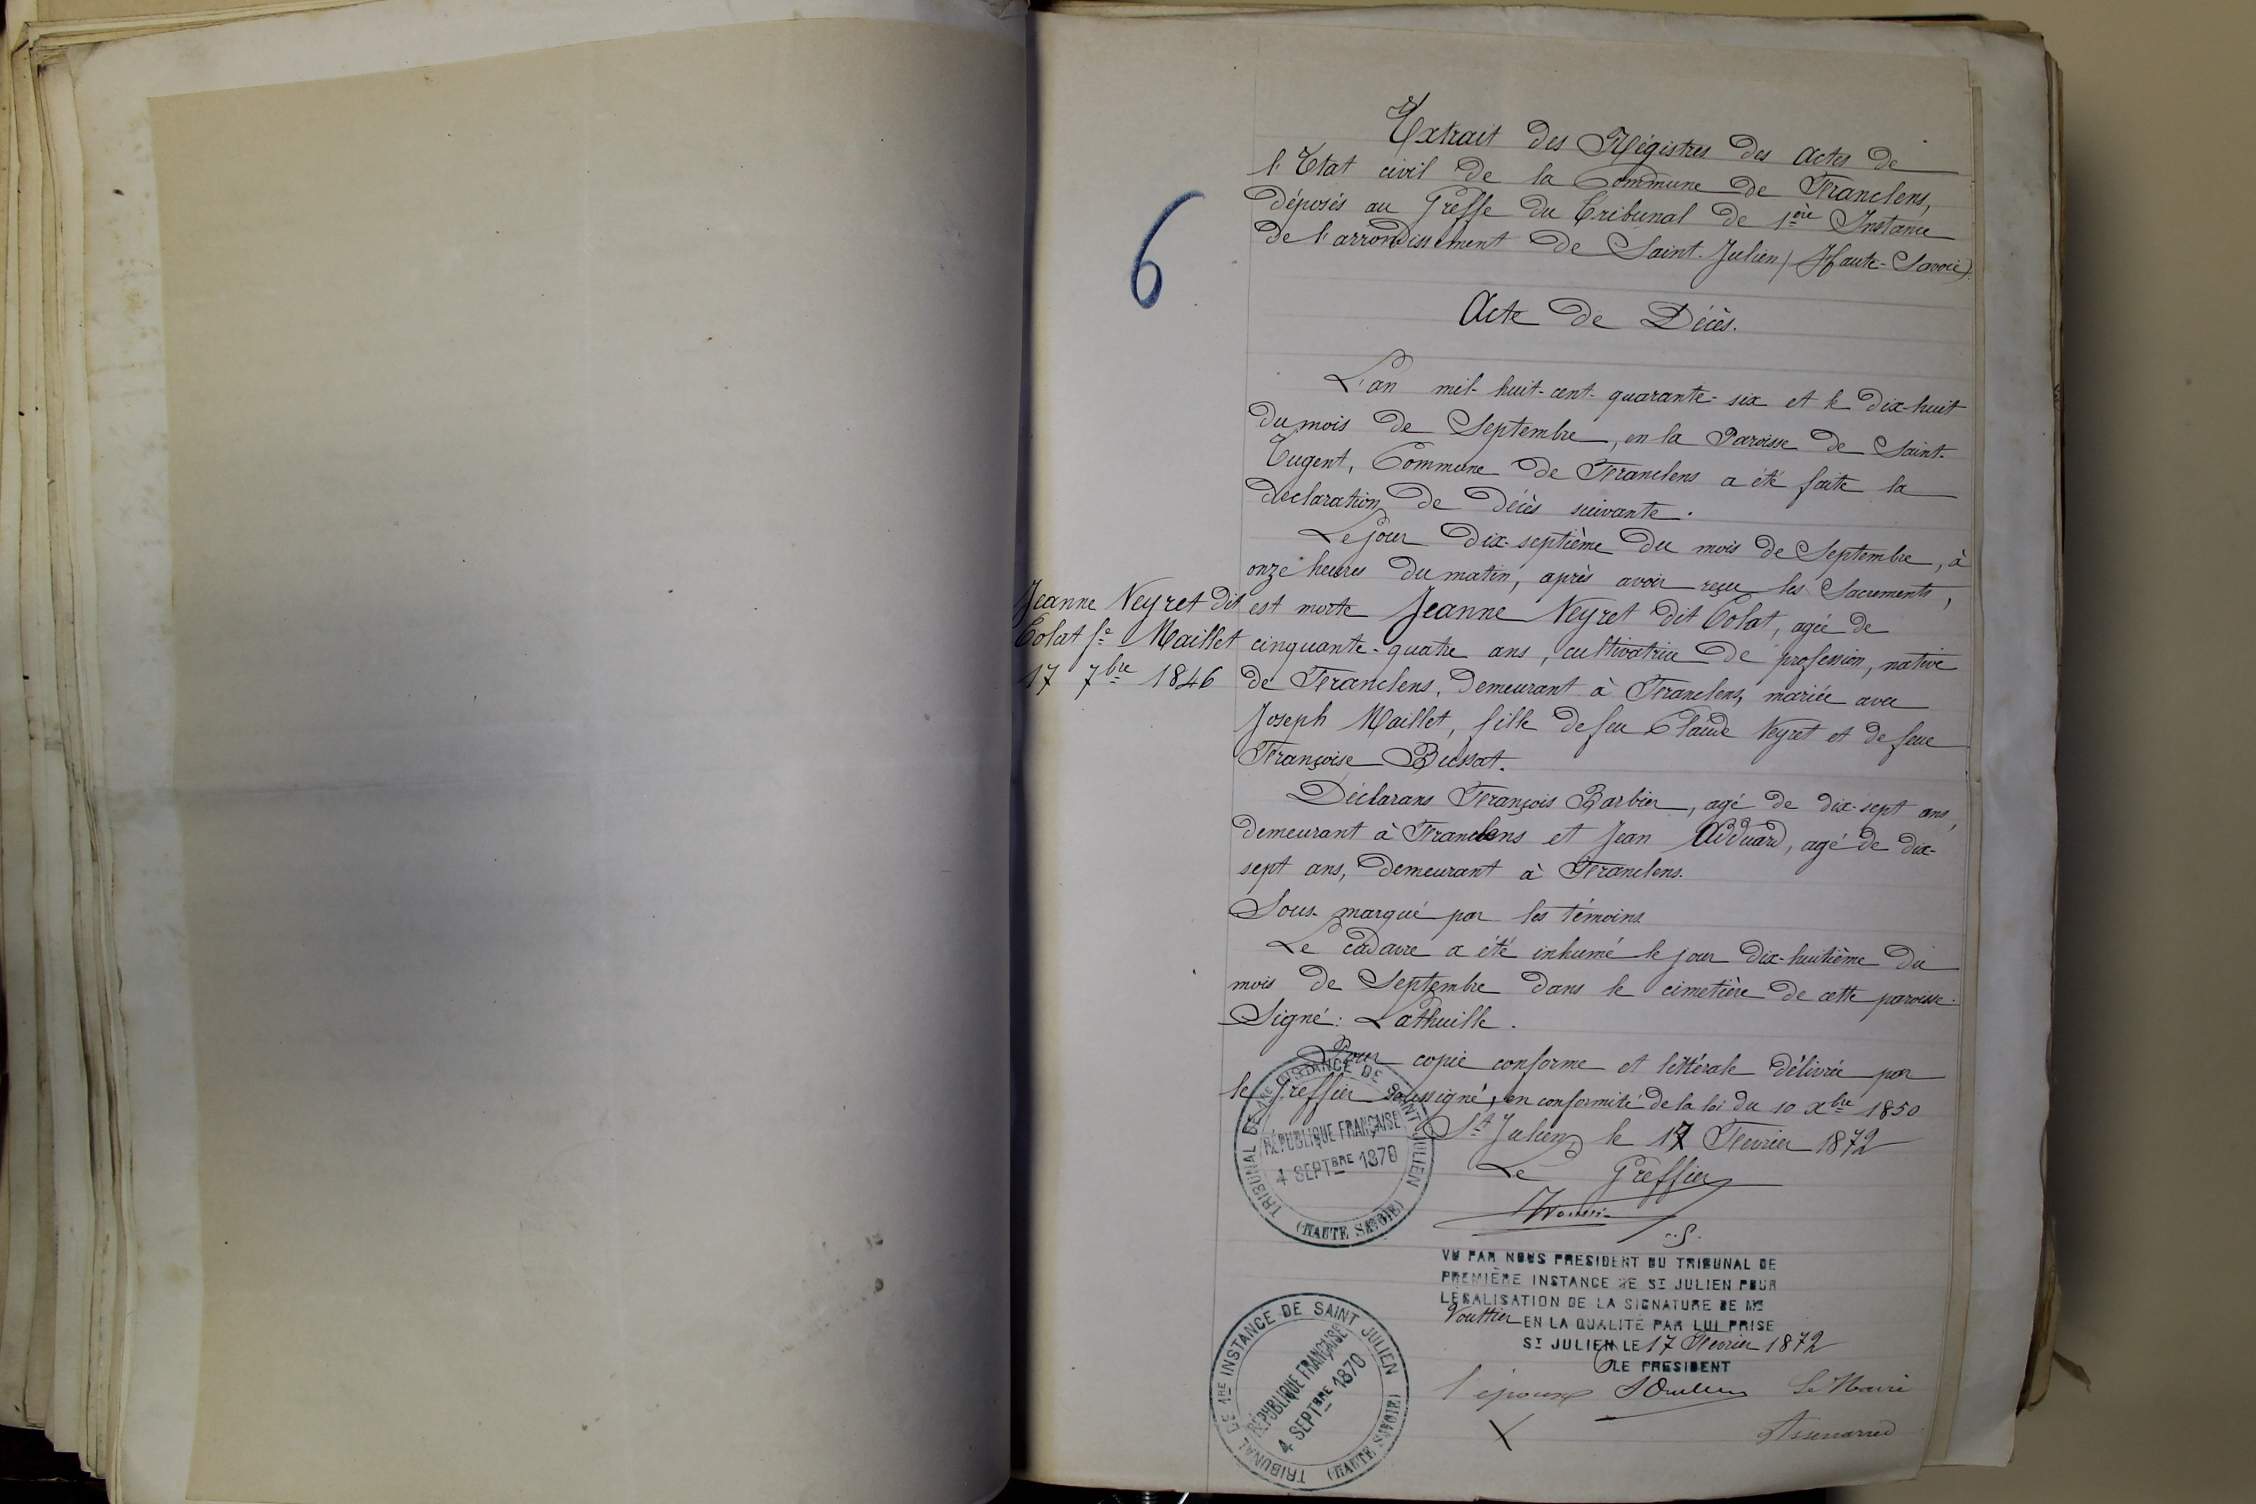 6
Extrait des Régistres des Actes de
l'Etat civil de la Commune de Franclens,
déposés au Greffe du Tribunal de 1ère Instance
de l'arrondissement de Saint-Julien (Haute-Savoie).
Acte de Décès.
L'an mil-huit-cent-quarante-six et le dix-huit
du mois de Septembre, en la Paroisse de Saint-
Eugent, Commune de Franclens a été faite la
déclaration de décès suivante.
Le jour dix-septième du mois de Septembre, à
onze heures du matin, après avoir reçu les Sacrements,
Jeanne Neyret dit
Colat fe Maillet
17 7bre 1846
est morte Jeanne Neyret dit Colat, agée de
cinquante-quatre ans, cultivatrice de profession, native
de Franclens, demeurant à Franclens, mariée avec
Joseph Maillet, fille de feu Claude Neyret et de feue
Françoise Bussat.
Déclarans François Barbier, agé de dix-sept ans,
demeurant à Franclens et Jean Adduard, agé de dix-
sept ans, demeurant à Franclens.
Sous-marqué par les témoins.
Le cadavre a été inhumé le jour dix-huitième du
mois de Septembre dans le cimetière de cette paroisse.
Signé: Lathuille.
Pour copie conforme et littérale délivrée par
le Greffier soussigné, en conformité de la loi du 10 xbre 1850
St Julien, le 17 Février 1872
Le Greffier
TRIBUNAL DE 1RE INSTANCE DE SAINT JULIEN
RÉPUBLIQUE FRANÇAISE
4 SEPTBRE 1870
(HAUTE SAVOIE)
VU PAR NOUS PRESIDENT DU TRIBUNAL DE
PREMIÈRE INSTANCE DE ST JULIEN POUR
LEGALISATION DE LA SIGNATURE DE ME
Vouttier EN LA QUALITE PAR LUI PRISE
ST JULIEN LE 17 Février 1872
LE PRESIDENT
l'époux Le Maire
X
TRIBUNAL DE 1RE INSTANCE DE SAINT JULIEN
RÉPUBLIQUE FRANÇAISE
4 SEPTBRE 1870
(HAUTE SAVOIE)